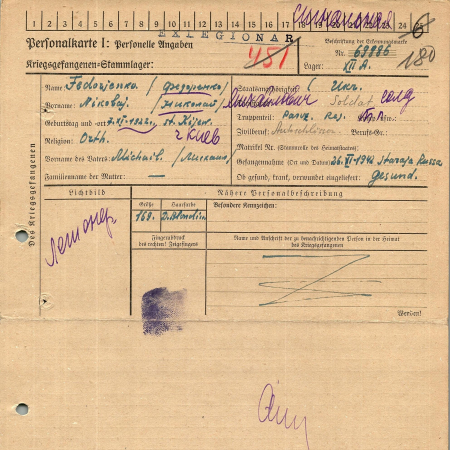 1 2 3 4 5 6 7 8 9 10 11 12 13 14 15 16 17 18 19 20 21 22 23 24 25
EXLEGIONAR
6
Personalkarte I: Personelle Angaben
451
Beschriftung der Erkennungsmarke
Nr. 69886
180
Kriegsgefangenen-Stammlager:
Lager: XII A.
Des Kriegsgefangenen
Name: Fedorienko / Федориенко /
Staatsangehörigkeit: / Ukr.
Vorname: Nikolaj / николай
Soldat солд
Geburtstag und -ort st. Kijew.
Truppenteil: Panz. Reg.
г Киев
Religion: Orth.
Zivilberuf: Berufs-Gr.
Matrikel Nr. (Stammrolle des Heimatstaates)
Vorname des Vaters: Michail.
Gefangennahme (Ort und Datum) 26. VI 1942 Staraja Russa
Familienname der Mutter: —
Ob gesund, krank, verwundet eingeliefert: gesund.
Lichtbild
Nähere Personalbeschreibung
Größe
Haarfarbe
Besondere Kennzeichen:
168.
D.blond
Легионер
Fingerabdruck
des rechten! Zeigefingers
Name und Anschrift der zu benachrichtigenden Person in der Heimat
des Kriegsgefangenen